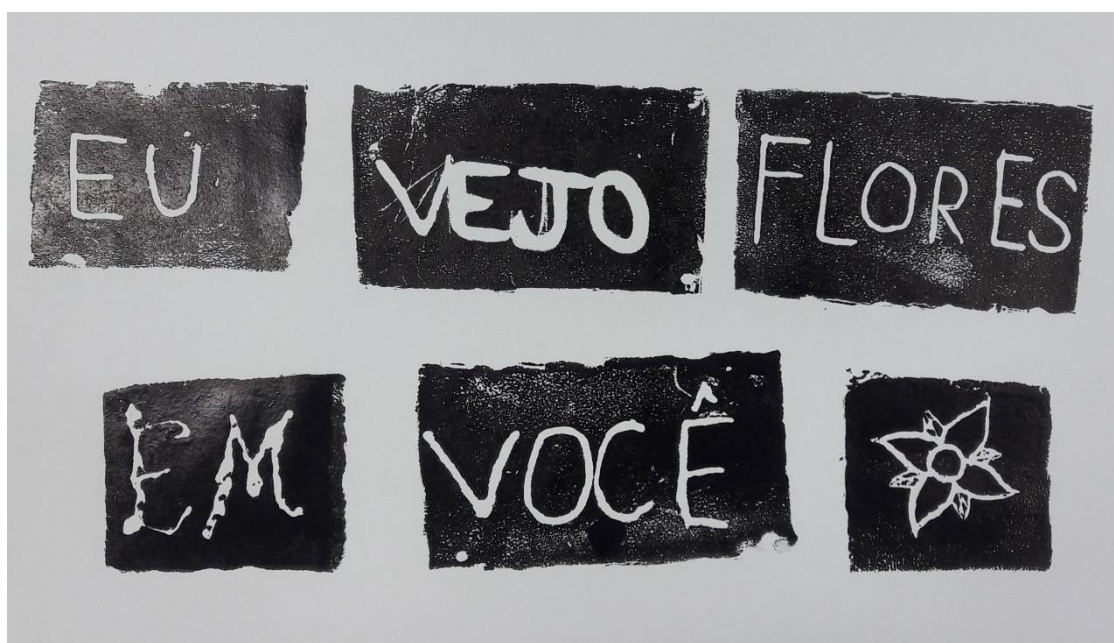 EU VEJO FLORES
EM VOCÊ